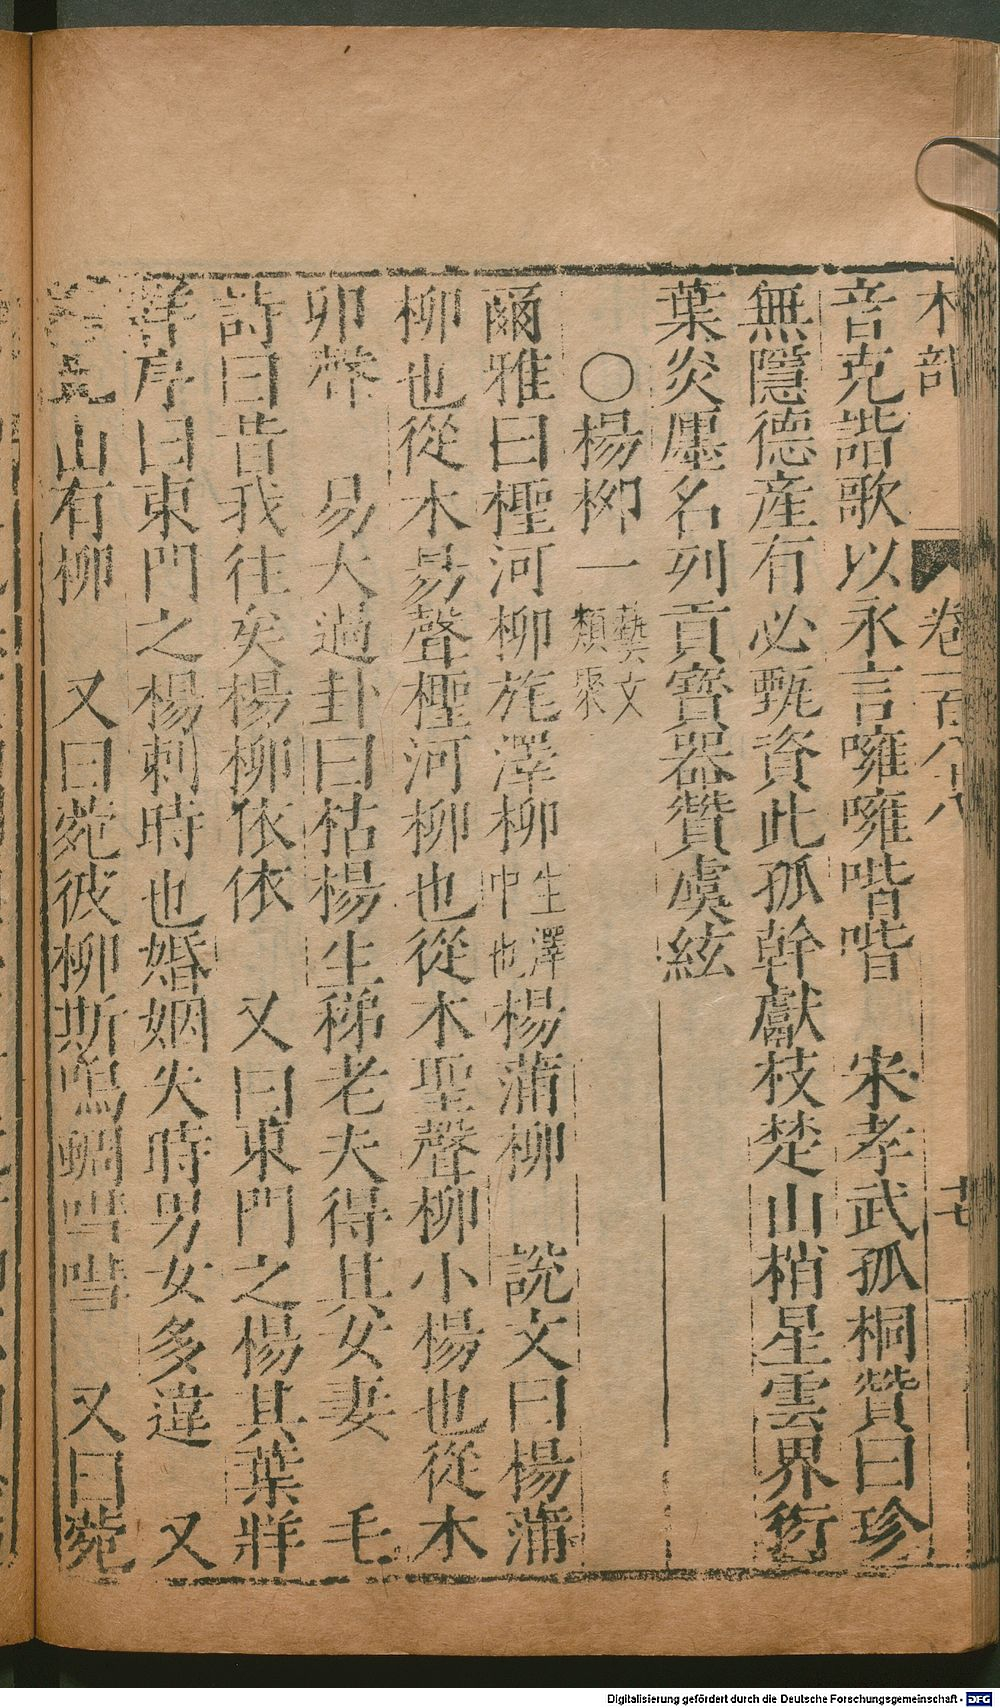 木部 卷一百八十八 十七
音克諧歌以永言噰噰喈喈 宋孝武孤桐贊曰珍
無隱德産有必甄資此孤幹獻枝楚山梢星雲界衍
葉炎塵名列貢寶器贊虞絃
〇楊柳一 藝文類聚
爾雅曰檉河柳旄澤柳生澤中也楊蒲柳 說文曰楊蒲
柳也從木昜聲檉河柳也從木聖聲柳小楊也從木
卯聲 易大過卦曰枯楊生稊老夫得其女妻 毛
詩曰昔我往矣楊柳依依 又曰東門之楊其葉牂
牂序曰東門之楊刺時也婚姻失時男女多違 又
山有柳 又曰菀彼柳斯鳴蜩嘒嘒 又曰菀
Digitalisierung gefördert durch die Deutsche Forschungsgemeinschaft - DFG